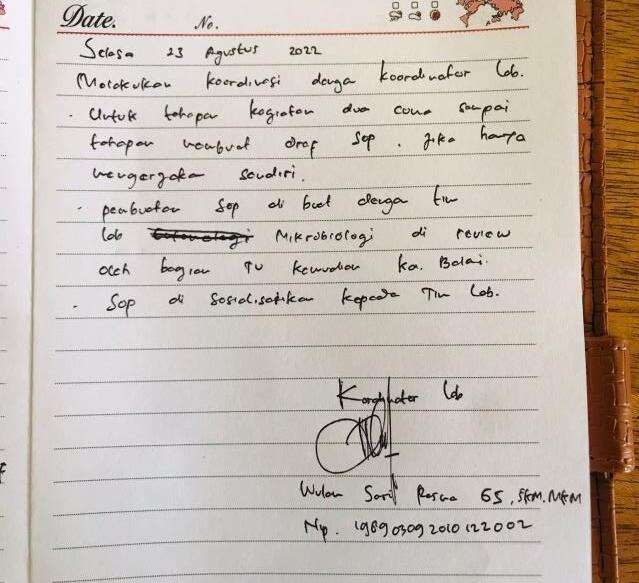 Date. No.
Selasa 23 Agustus 2022
Melakukan koordinasi denga koordinator Lab.
. Untuk tahapan kegiatan dua cuma sampai
tahapan membuat draf Sop . Jika hanya
mengerjaka sendiri.
. pembuatan Sop di buat denga tim
lab Mikrobiologi di review
oleh bagian TU kemudian ka. Balai.
. Sop di Sosialisasikan kepada Tim Lab.
Koordinator Lab
Wulan Sari GS, SKM, MKM
Nip. 198903092010122002